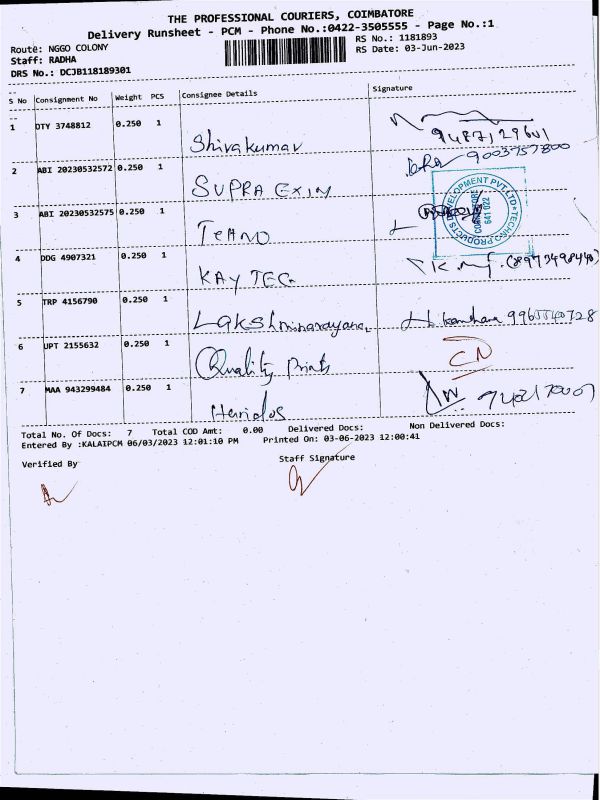 THE PROFESSIONAL COURIERS, COIMBATORE
Delivery Runsheet - PCM - Phone No.:0422-3505555 - Page No.:1
Route: NGGO COLONY
RS No.: 1181893
Staff: RADHA
RS Date: 03-Jun-2023
DRS No.: DCJB118189301
S No Consignment No Weight PCS Consignee Details Signature
1 DTY 3748812 0.250 1
Shivakumar 9487129601
2 ABI 20230532572 0.250 1
SUPRA EXIM 9003757800
3 ABI 20230532575 0.250 1
DEVELOPMENT PVT LTD TECHNO PRODUCTS
COIMBATORE
641 022
4 DDG 4907321 0.250 1
KAY TEC
5 TRP 4156790 0.250 1
Lakshminarayanan
6 UPT 2155632 0.250 1
Quality Prints
7 MAA 943299484 0.250 1
Haridos
Total No. Of Docs: 7 Total COD Amt: 0.00 Delivered Docs: Non Delivered Docs:
Entered By :KALAIPCM 06/03/2023 12:01:10 PM Printed On: 03-06-2023 12:00:41
Verified By Staff Signature